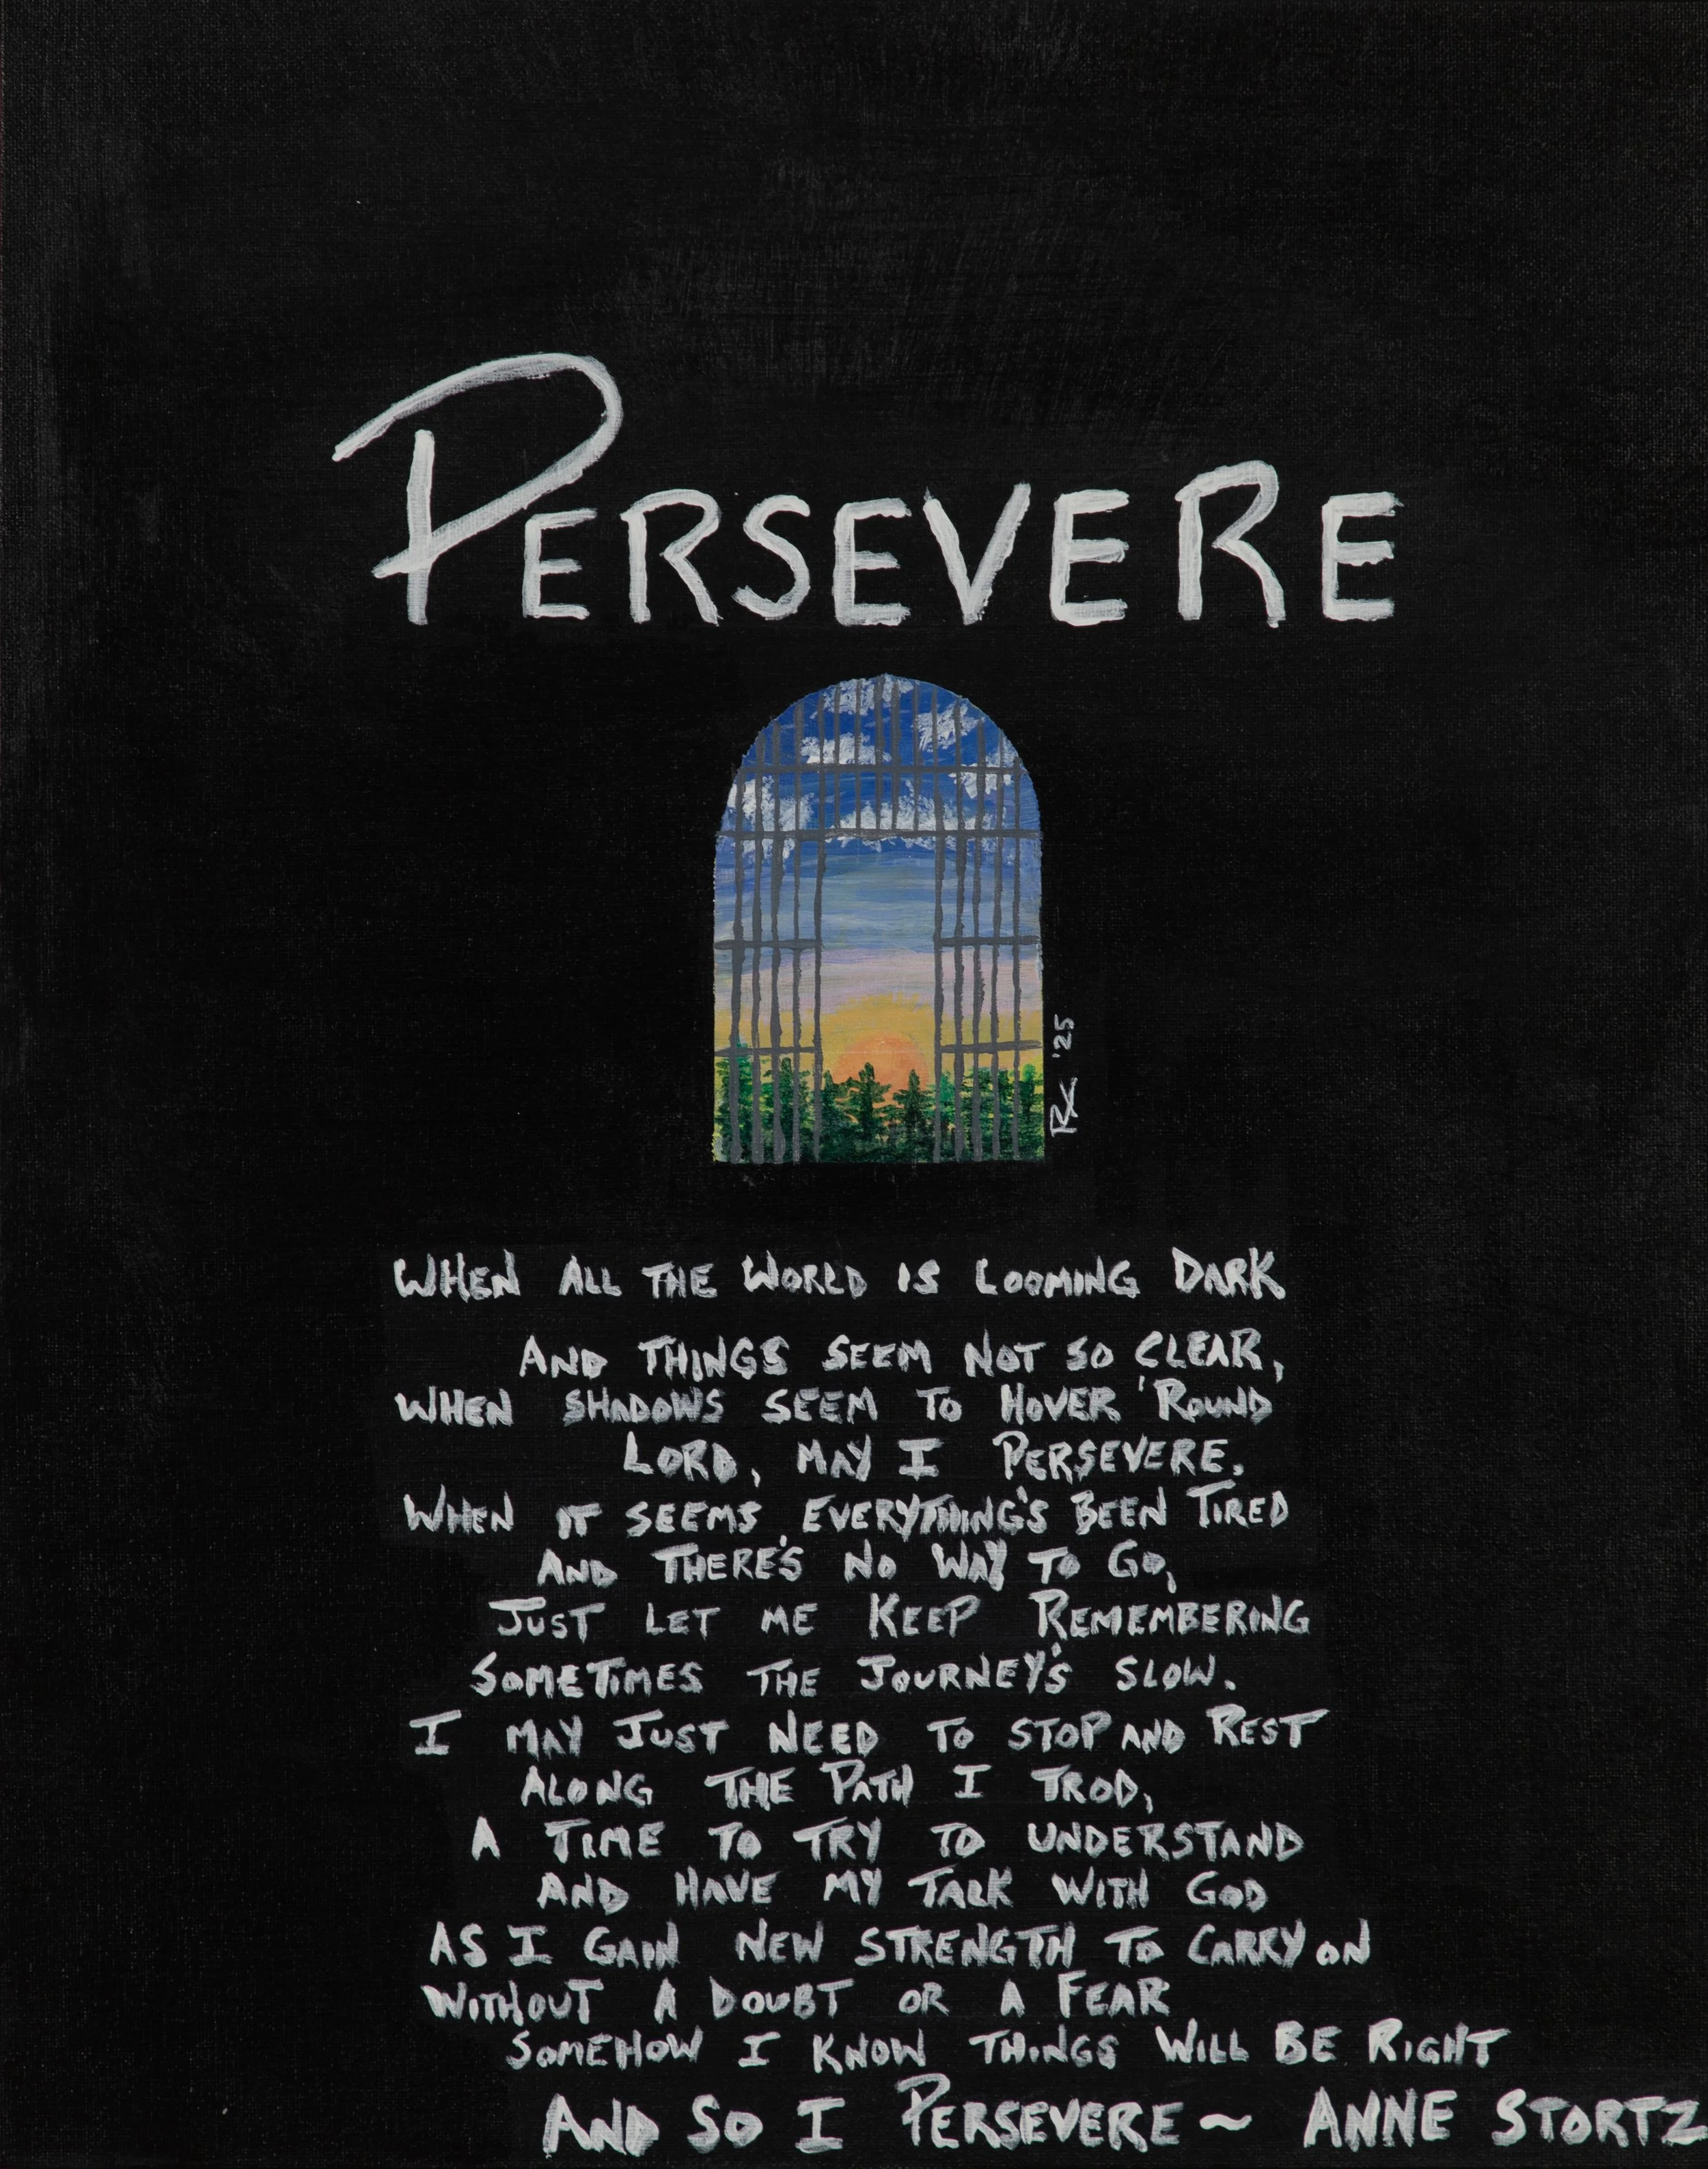 PERSEVERE
RX '25
WHEN ALL THE WORLD IS LOOMING DARK
AND THINGS SEEM NOT SO CLEAR,
WHEN SHADOWS SEEM TO HOVER 'ROUND
LORD, MAY I PERSEVERE.
WHEN IT SEEMS EVERYTHING'S BEEN TIRED
AND THERE'S NO WAY TO GO,
JUST LET ME KEEP REMEMBERING
SOMETIMES THE JOURNEY'S SLOW.
I MAY JUST NEED TO STOP AND REST
ALONG THE PATH I TROD,
A TIME TO TRY TO UNDERSTAND
AND HAVE MY TALK WITH GOD
AS I GAIN NEW STRENGTH TO CARRY ON
WITHOUT A DOUBT OR A FEAR
SOMEHOW I KNOW THINGS WILL BE RIGHT
AND SO I PERSEVERE ~ ANNE STORTZ